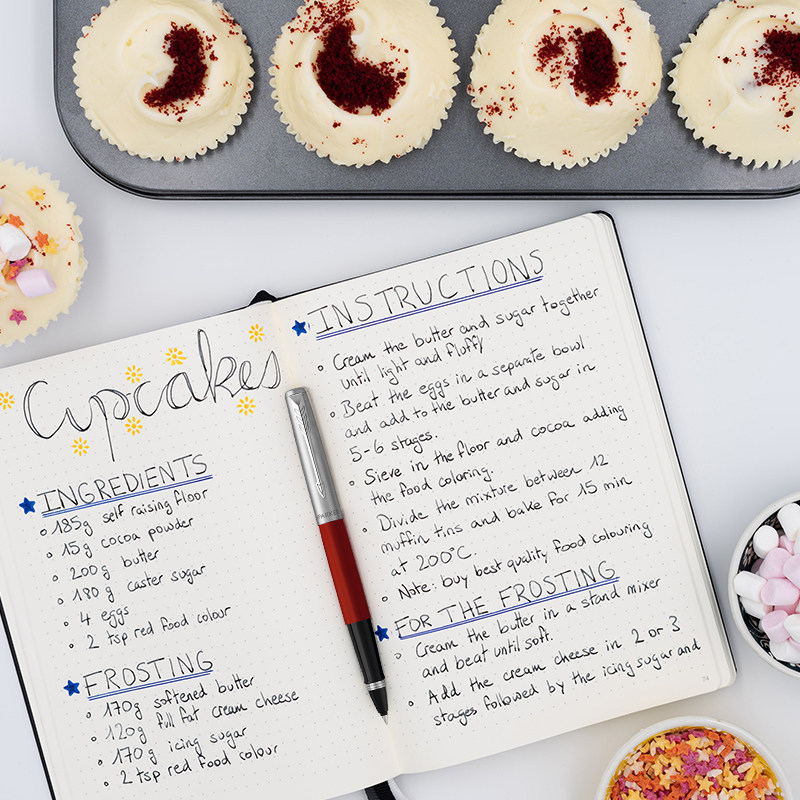 Cupcakes
INGREDIENTS
185g self raising floor
15g cocoa powder
200g butter
180g caster sugar
4 eggs
2 tsp red food colour
FROSTING
170g softened butter
120g full fat cream cheese
170g icing sugar
2 tsp red food colour
INSTRUCTIONS
Cream the butter and sugar together
until light and fluffy
Beat the eggs in a separate bowl
and add to the butter and sugar in
5-6 stages.
Sieve in the floor and cocoa adding
the food coloring.
Divide the mixture between 12
muffin tins and bake for 15 min
at 200°C.
Note: buy best quality food colouring
FOR THE FROSTING
Cream the butter in a stand mixer
and beat until soft.
Add the cream cheese in 2 or 3
stages followed by the icing sugar and
PARKER